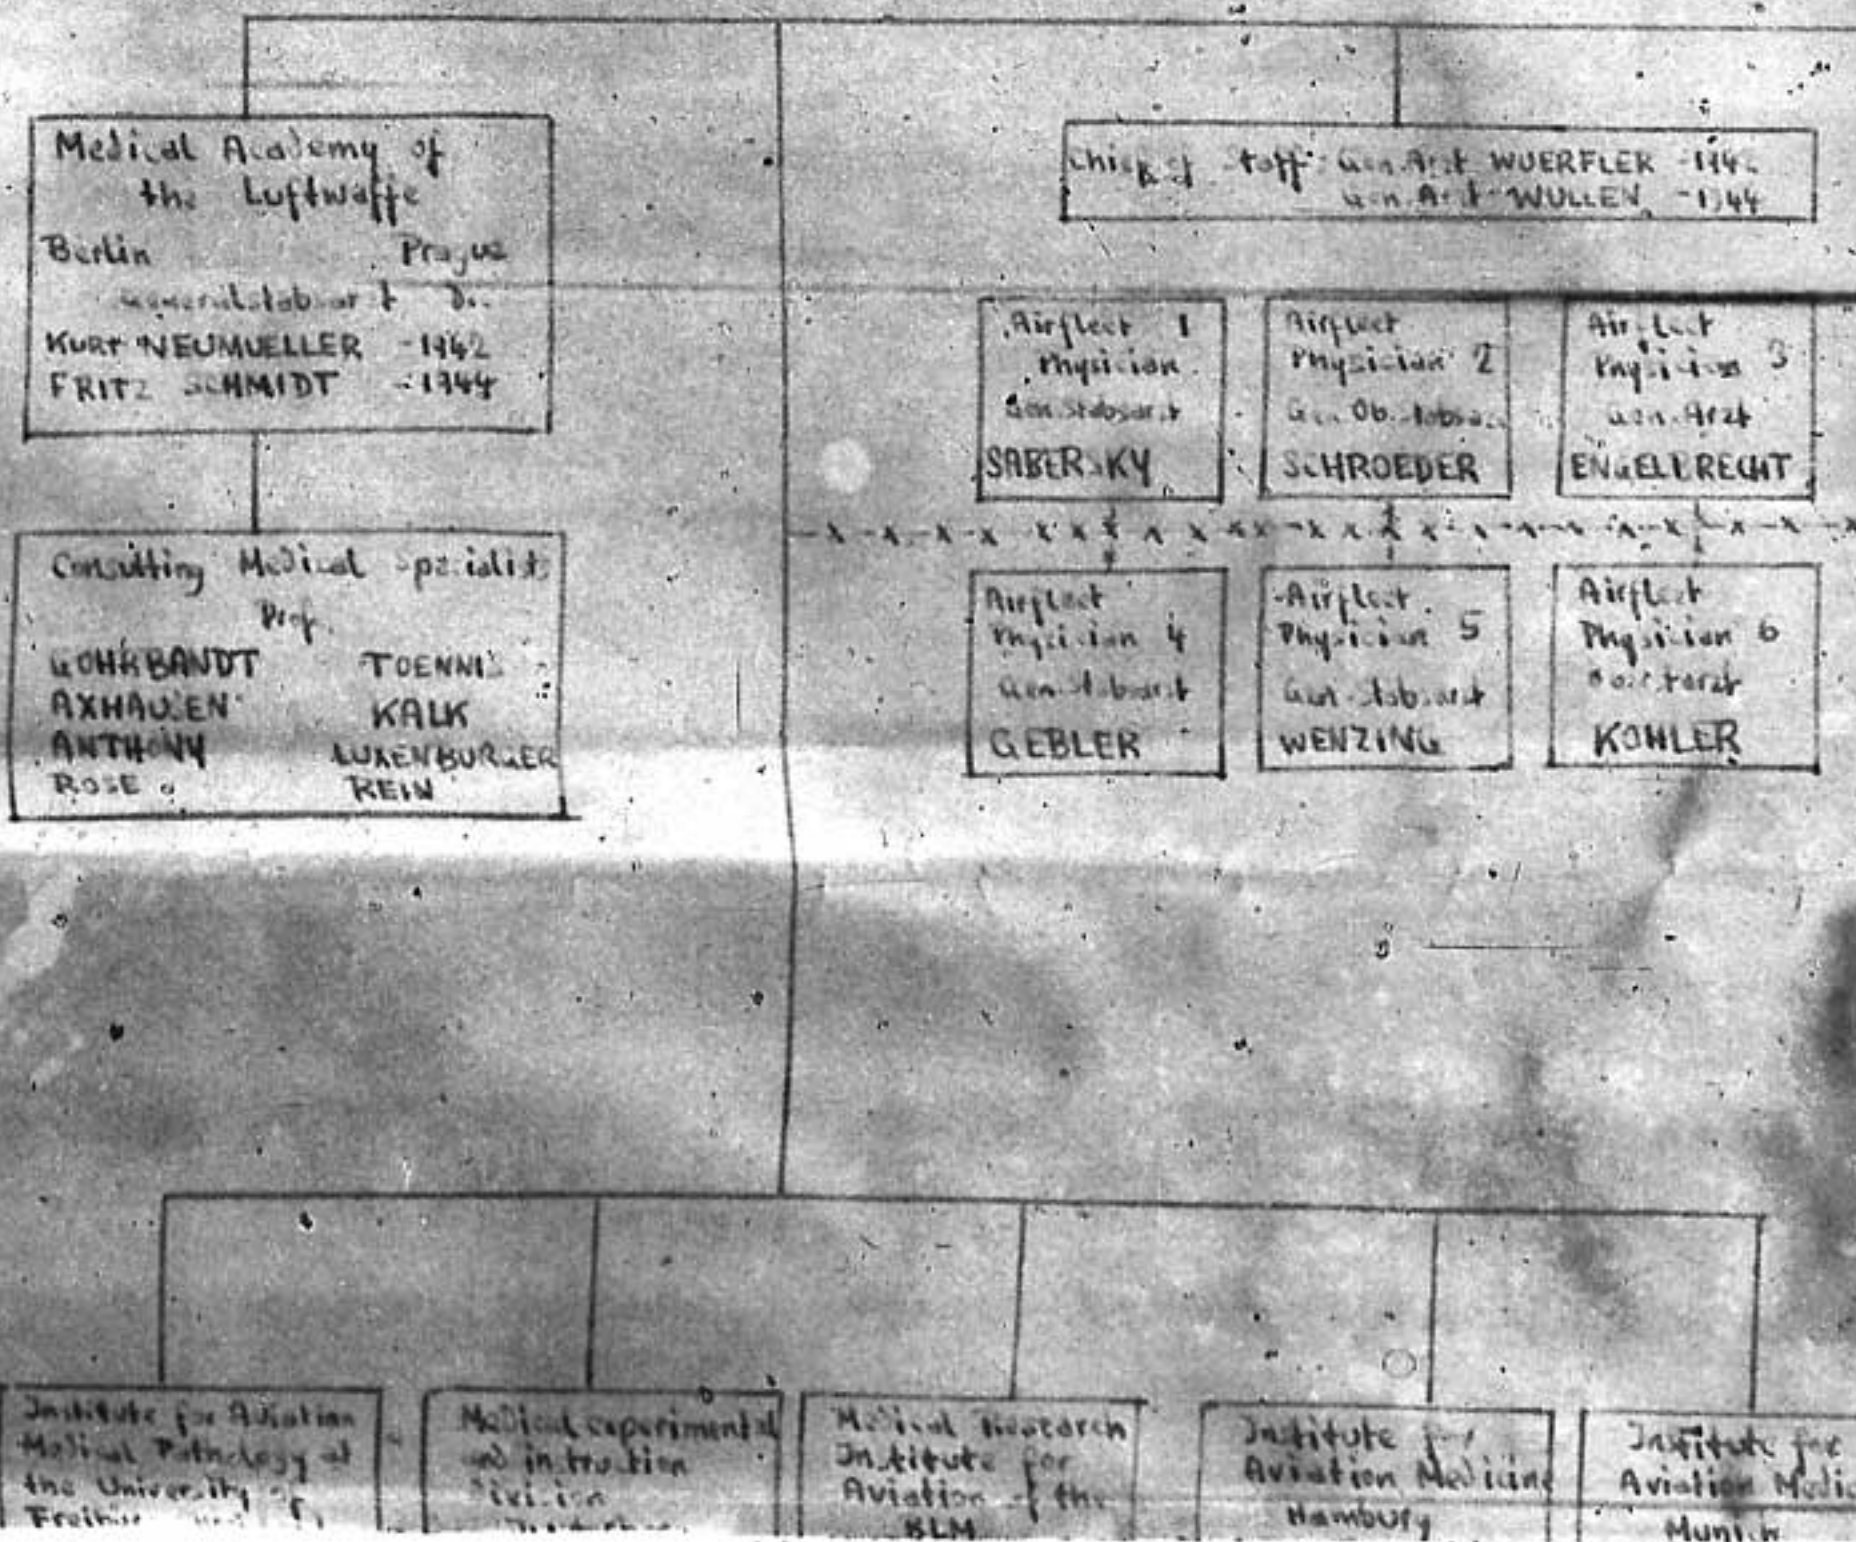 Medical Academy of
the Luftwaffe
Berlin Prague
Generalstabsarzt Dr.
KURT NEUMUELLER -1942
FRITZ SCHMIDT -1944
Consulting Medical Specialists
Prof.
GOHRBANDT TOENNIS
AXHAUSEN KALK
ANTHONY LUXENBURGER
ROSE REIN
Chief of Staff: Gen.Arzt WUERFLER
Gen.Arzt WULLEN -1944
Airfleet 1
Physician
Gen.Stabsarzt
SABERSKY
Airfleet
Physician 2
Gen.Ob.Stabsarzt
SCHROEDER
Airfleet
Physician 3
Gen.Arzt
ENGELBRECHT
Airfleet
Physician 4
Gen.Stabsarzt
GEBLER
Airfleet
Physician 5
Gen.Stabsarzt
WENZING
Airfleet
Physician 6
KOHLER
Institute for Aviation
Medical Pathology at
the University of
Medical experimental
and instruction
Division
Medical Research
Institute for
Aviation of the
RLM
Institute for
Aviation Medicine
Hamburg
Institute for
Aviation Medic
Munich